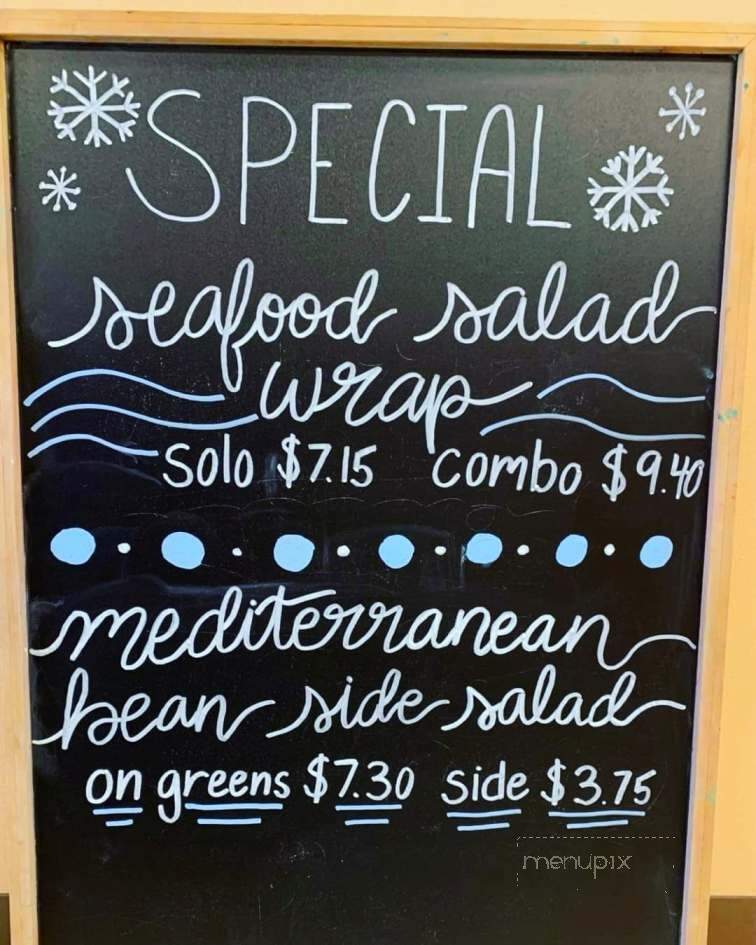 SPECIAL
seafood salad
wrap
solo $7.15 combo $9.40
mediterranean
bean side salad
on greens $7.30 side $3.75
menupix